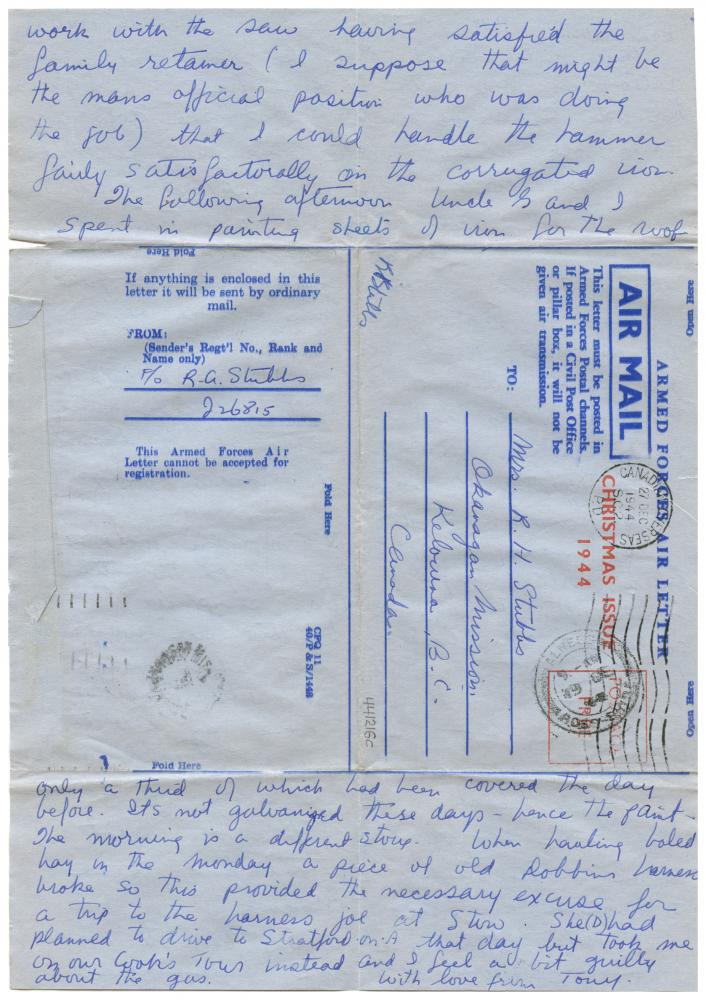 work with the saw having satisfied the
family retainer (I suppose that might be
the mans official position who was doing
the job) that I could handle the hammer
fairly satisfactorally on the corrugated iron.
The following afternoon Uncle G and I
spent in painting sheets of iron for the roof
Fold Here
If anything is enclosed in this
letter it will be sent by ordinary
mail.
FROM:
(Sender's Regt'l No., Rank and
Name only)
F/O R.A. Stubbs
J26815
This Armed Forces Air
Letter cannot be accepted for
registration.
Fold Here
CPQ 11
40/P & S/1448
Fold Here
Open Here
ARMED FORCES AIR LETTER
AIR MAIL
This letter must be posted in
Armed Forces Postal channels.
If posted in a Civil Post Office
or pillar box, it will not be
given air transmission.
CANADA OVERSEAS
27 DEC
1944
CHRISTMAS ISSUE
1944
FREE
TO:
Mrs. R. H. Stubbs
Okanagan Mission,
Kelowna, B.C.
Canada.
441216c
Open Here
only a third of which had been covered the day
before. It's not galvanized these days - hence the paint -
The morning is a different story. When hauling baled
hay on the monday a piece of old Dobbins harness
broke so this provided the necessary excuse for
a trip to the harness joe at Stow. She (D) had
planned to drive to Stratford-on-A that day but took me
on our Cook's Tour instead and I feel a bit guilty
about the gas. With love from Tony.